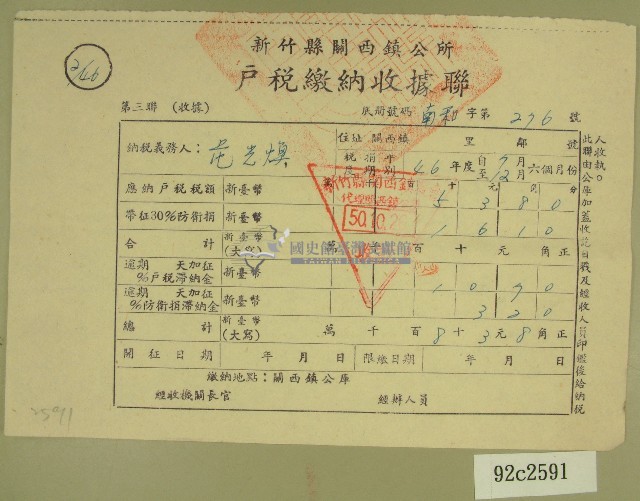 2/46
新竹縣關西鎮公所
戶稅繳納收據聯
第三聯 (收據) 底冊號碼 南和 字第 276 號
納稅義務人: 范光煥 住址 關西鎮 里 鄰 號
稅捐年度期別 46 年度 自7月至12月 六個月份
應納戶稅稅額 新臺幣 5 3 8 0
帶征30%防衛捐 新臺幣 1 6 1 0
合計 新臺幣(大寫) 萬 千 百 十 元 角正
逾期 天加征 %戶稅滯納金 新臺幣 1 0 9 0
逾期 天加征 %防衛捐滯納金 新臺幣 3 2 0
總計 新臺幣(大寫) 萬 千 百 8 十 3 元 8 角正
開征日期 年 月 日 限繳日期 年 月 日
繳納地點:關西鎮公庫
經收機關長官 經辦人員
此聯由公庫加蓋收訖日戳及經收人員印鑑後給納稅人收執。
新竹縣關西鎮
代理
50.10.2
國史館臺灣文獻館
TAIWAN HISTORICA
2591
92c2591